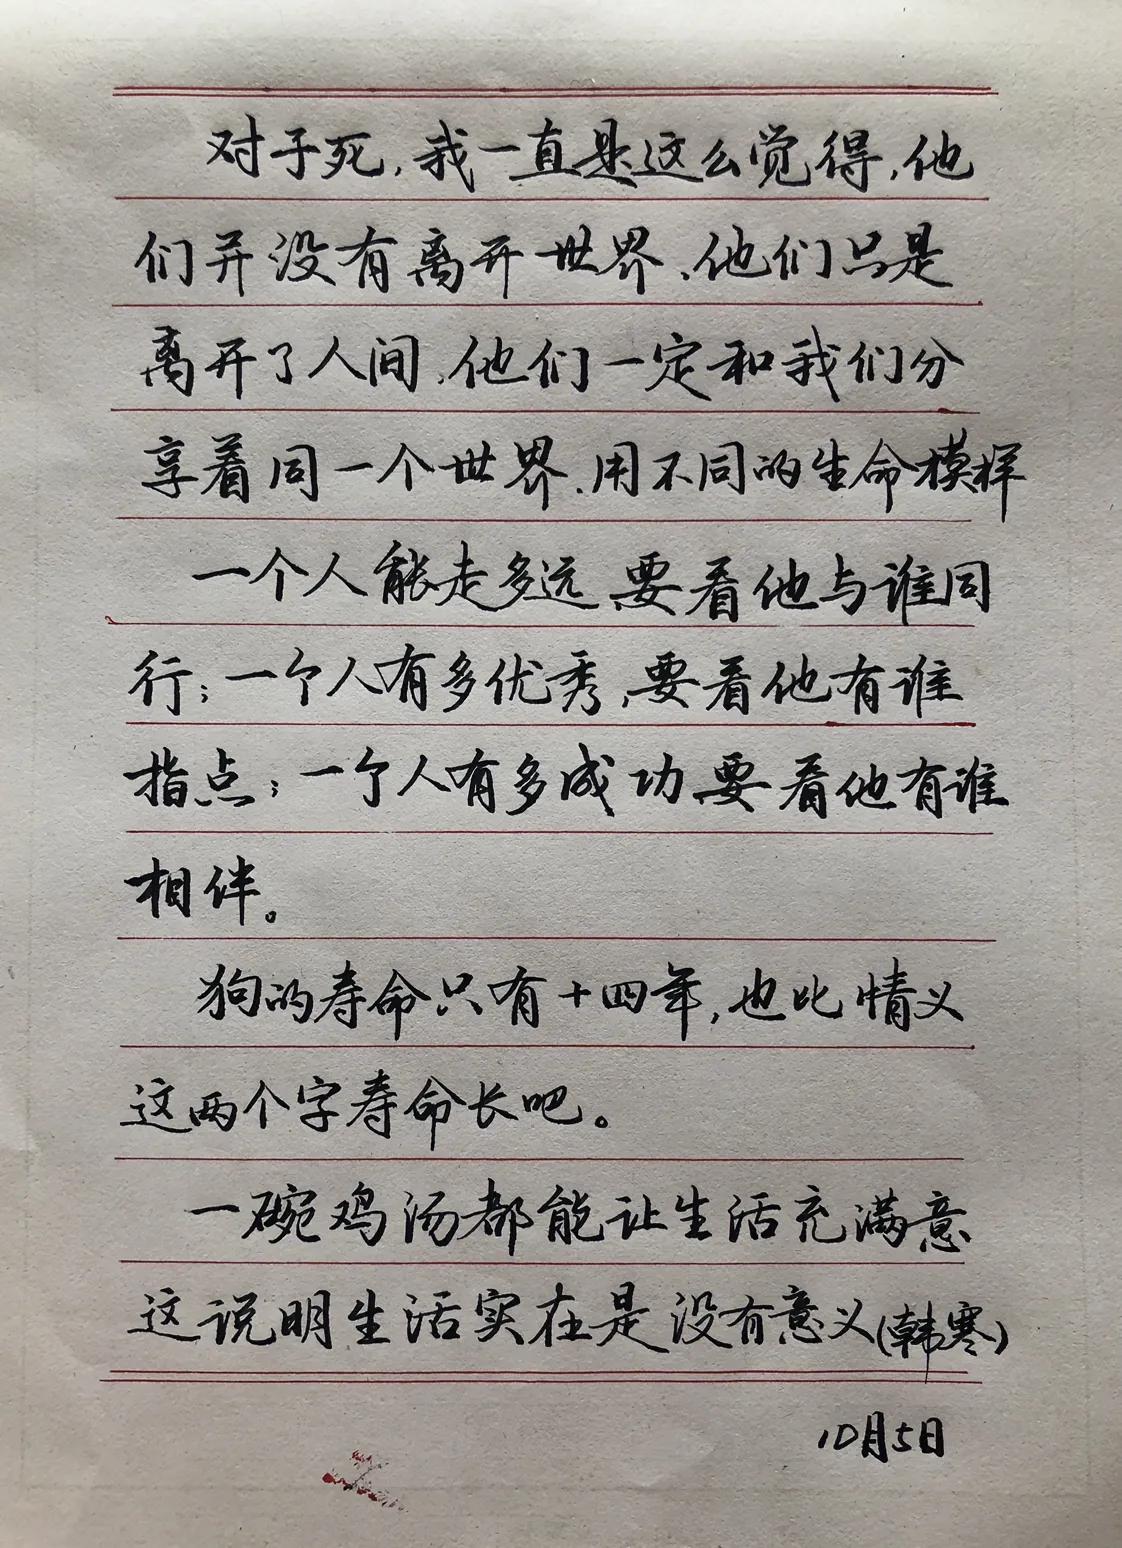 对于死,我一直是这么觉得,他
们并没有离开世界、他们只是
离开了人间,他们一定和我们分
享着同一个世界、用不同的生命模样
一个人能走多远 要看他与谁同
行;一个人有多优秀,要看他有谁
指点;一个人有多成功,要看他有谁
相伴。
狗的寿命只有十四年,也比情义
这两个字寿命长吧。
一碗鸡汤都能让生活充满意
这说明生活实在是没有意义(韩寒)
10月5日